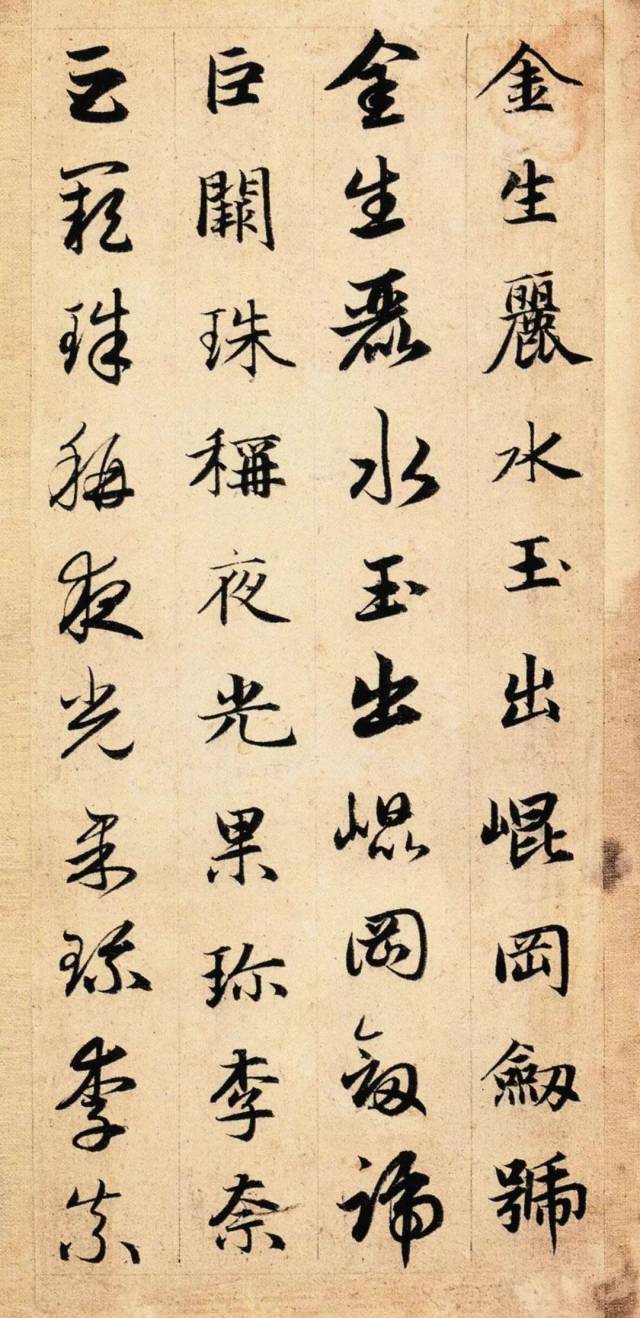 金生麗水玉出崐岡劔號
金生麗水玉出崐岡劔號
巨闕珠稱夜光果珎李奈
巨闕珠稱夜光果珎李柰